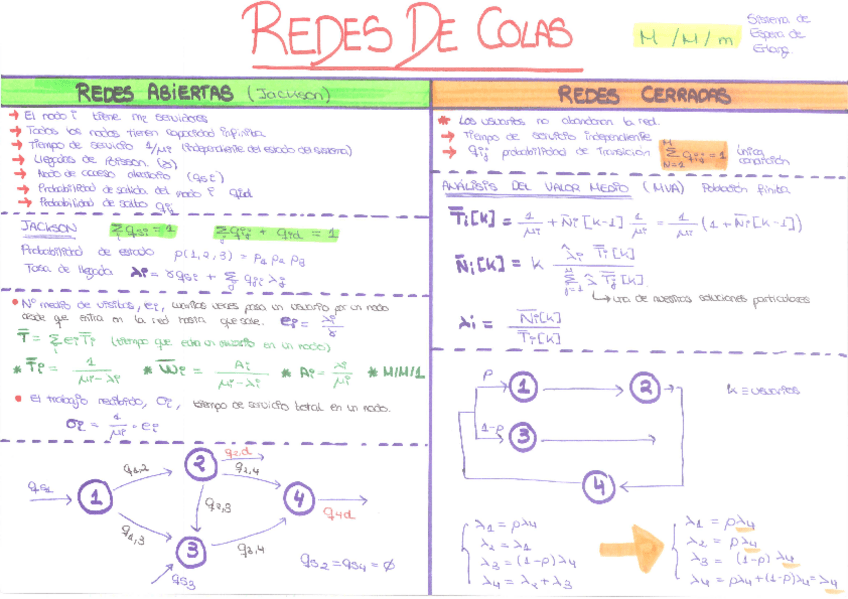 REDES DE COLAS
M / M / m
Sistema de
Espera de
Erlang
REDES ABIERTAS (Jackson)
→ El nodo i tiene mi servidores
→ Todos los nodos tienen capacidad infinita
→ Tiempo de servicio 1/μi (independiente del estado del sistema)
→ Llegadas de Poisson (γ)
→ Nodo de acceso aleatorio (qsi)
→ Probabilidad de salida del nodo i qid
→ Probabilidad de salto qij
JACKSON Σ qsi = 1 Σ qij + qid = 1
Probabilidad de estado p(1,2,3) = p1 p2 p3
Tasa de llegada λi = γqsi + Σ qji λj
• Nº medio de visitas, ei, cuantas veces pasa un usuario por un nodo
desde que entra en la red hasta que sale. ei = λi/γ
T̄ = Σ ei T̄i (tiempo que esta un usuario en un nodo)
* T̄i = 1/(μi-λi) * W̄i = Ai/(μi-λi) * Ai = λi/μi * M/M/1
• El trabajo recibido, σi, tiempo de servicio total en un nodo.
σi = 1/μi · ei
qs1
1
q1,2
2
q2,d
q2,4
q2,3
4
q4d
q1,3
3
q3,4
qs3
qs2 = qs4 = ∅
REDES CERRADAS
* Los usuarios no abandonan la red.
→ Tiempo de servicio independiente
→ qij probabilidad de transición Σ qij = 1 única
condición
ANÁLISIS DEL VALOR MEDIO (MVA) Población finita
T̄i[k] = 1/μi + N̄i[k-1] 1/μi = 1/μi (1 + N̄i[k-1])
N̄i[k] = k λ̂i T̄i[k] / Σ λ̂ T̄j[k]
↳ una de nuestras soluciones particulares
λi = N̄i[k] / T̄i[k]
p
1
2
k ≡ usuarios
1-p
3
4
λ1 = pλ4
λ2 = λ1
λ3 = (1-p)λ4
λ4 = λ2 + λ3
λ1 = pλ4
λ2 = pλ4
λ3 = (1-p) λ4
λ4 = pλ4+(1-p)λ4 = λ4